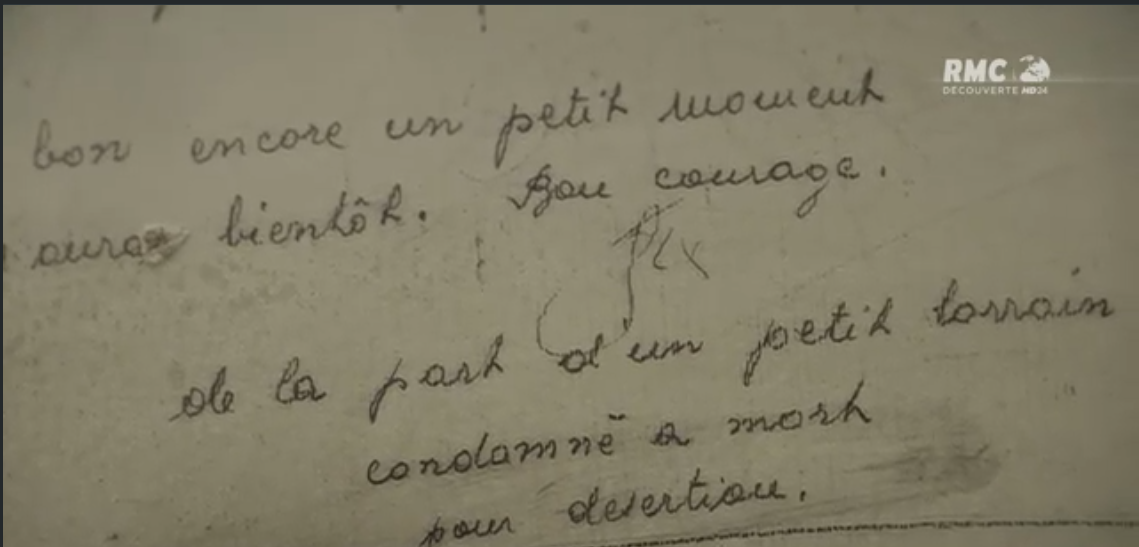 RMC
DECOUVERTE HD24
bon encore un petit moment
auras bientôt. Bon courage.
de la part d'un petit lorrain
condamné a mort
pour desertion.